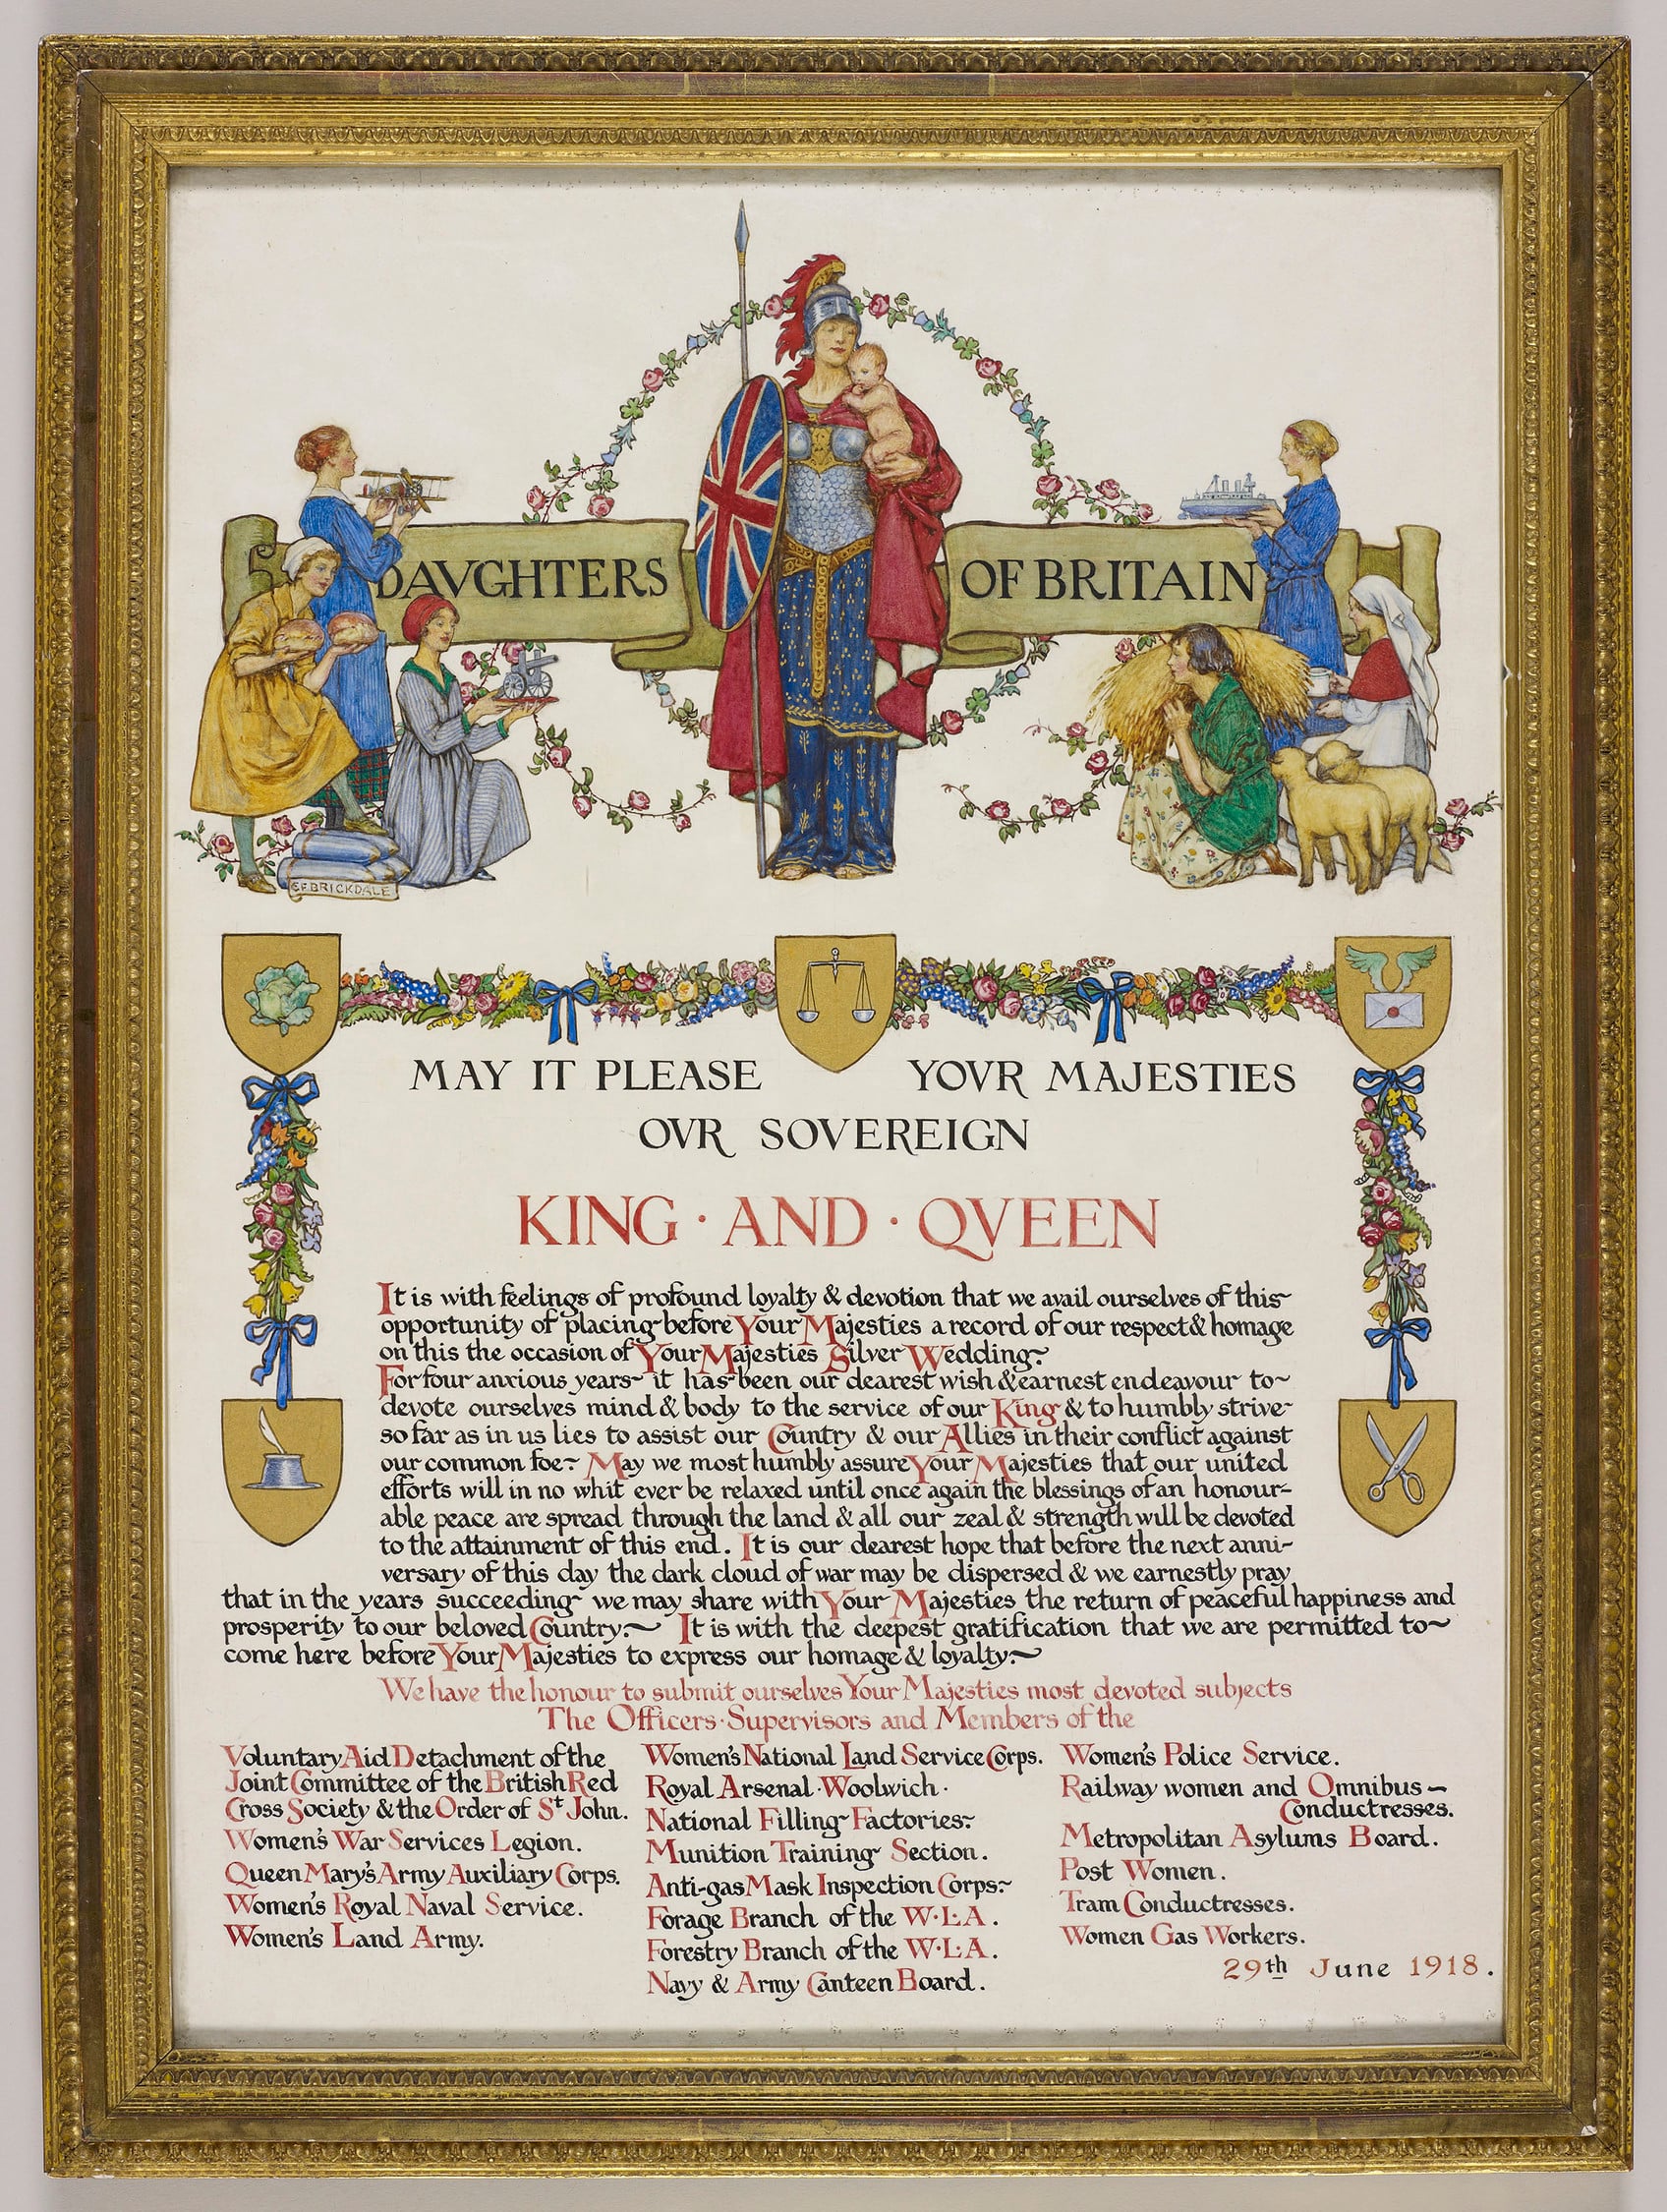 DAVGHTERS OF BRITAIN
E.F.BRICKDALE
MAY IT PLEASE YOVR MAJESTIES
OVR SOVEREIGN
KING · AND · QVEEN
It is with feelings of profound loyalty & devotion that we avail ourselves of this
opportunity of placing before Your Majesties a record of our respect & homage
on this the occasion of Your Majesties Silver Wedding.
For four anxious years it has been our dearest wish & earnest endeavour to
devote ourselves mind & body to the service of our King & to humbly strive
so far as in us lies to assist our Country & our Allies in their conflict against
our common foe. May we most humbly assure Your Majesties that our united
efforts will in no whit ever be relaxed until once again the blessings of an honour-
able peace are spread through the land & all our zeal & strength will be devoted
to the attainment of this end. It is our dearest hope that before the next anni-
versary of this day the dark cloud of war may be dispersed & we earnestly pray
that in the years succeeding we may share with Your Majesties the return of peaceful happiness and
prosperity to our beloved Country. It is with the deepest gratification that we are permitted to
come here before Your Majesties to express our homage & loyalty.
We have the honour to submit ourselves Your Majesties most devoted subjects
The Officers · Supervisors and Members of the
Voluntary Aid Detachment of the
Joint Committee of the British Red
Cross Society & the Order of St John.
Women's War Services Legion.
Queen Mary's Army Auxiliary Corps.
Women's Royal Naval Service.
Women's Land Army.
Women's National Land Service Corps.
Royal Arsenal · Woolwich ·
National Filling Factories.
Munition Training Section.
Anti-gas Mask Inspection Corps.
Forage Branch of the W·L·A.
Forestry Branch of the W·L·A.
Navy & Army Canteen Board.
Women's Police Service.
Railway women and Omnibus -
Conductresses.
Metropolitan Asylums Board.
Post Women.
Tram Conductresses.
Women Gas Workers.
29th June 1918.